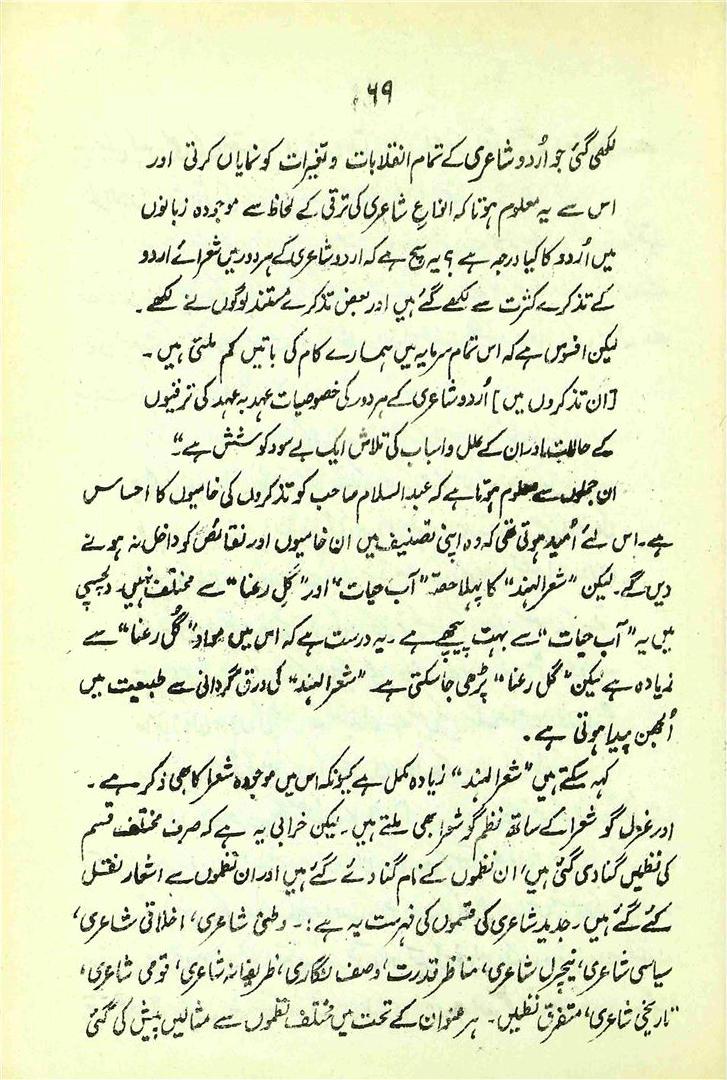 ۶۹
لکھی گئی جو اُردو شاعری کے تمام انقلابات و تغیرات کو نمایاں کرتی اور
اس سے یہ معلوم ہوتا کہ انواعِ شاعری کی ترقی کے لحاظ سے موجودہ زبانوں
میں اُردو کا کیا درجہ ہے؟ یہ سچ ہے کہ اردو شاعری کے ہر دور میں شعرائے اردو
کے تذکرے کثرت سے لکھے گئے ہیں اور بعض تذکرے مستند لوگوں نے لکھے۔
لیکن افسوس ہے کہ اس تمام سرمایہ میں ہمارے کام کی باتیں کم ملتی ہیں۔
[ان تذکروں میں] اُردو شاعری کے ہر دور کی خصوصیات عہد بہ عہد کی ترقیوں
کے حالات اور ان کے علل و اسباب کی تلاش ایک بے سود کوشش ہے"۔
ان جملوں سے معلوم ہوتا ہے کہ عبدالسلام صاحب کو تذکروں کی خامیوں کا احساس
ہے۔ اس لئے اُمید ہوتی تھی کہ وہ اپنی تصنیف میں ان خامیوں اور نقائص کو داخل نہ ہونے
دیں گے۔ لیکن "شعر الہند" کا پہلا حصہ "آب حیات" اور "گل رعنا" سے مختلف نہیں۔ دلچسپی
میں یہ "آب حیات" سے بہت پیچھے ہے۔ یہ درست ہے کہ اس میں مواد "گُل رعنا" سے
زیادہ ہے لیکن "گل رعنا" پڑھی جاسکتی ہے "شعر الہند" کی ورق گردانی سے طبیعت میں
اُلجھن پیدا ہوتی ہے۔
کہہ سکتے ہیں "شعر الہند" زیادہ مکمل ہے کیونکہ اس میں موجودہ شعرا کا بھی ذکر ہے۔
اور غزل گو شعرا کے ساتھ نظم گو شعرا بھی ملتے ہیں۔ لیکن خرابی یہ ہے کہ صرف مختلف قسم
کی نظمیں گنا دی گئی ہیں، ان نظموں کے نام گنا دئے گئے ہیں اور ان نظموں سے اشعار نقل
کئے گئے ہیں۔ جدید شاعری کی قسموں کی فہرست یہ ہے:۔ وطنی شاعری، اخلاقی شاعری،
سیاسی شاعری، نیچرل شاعری، مناظر قدرت، وصف نگاری، ظریفانہ شاعری، قومی شاعری،
تاریخی شاعری، متفرق نظمیں۔ ہر عنوان کے تحت میں مختلف نظموں سے مثالیں پیش کی گئی